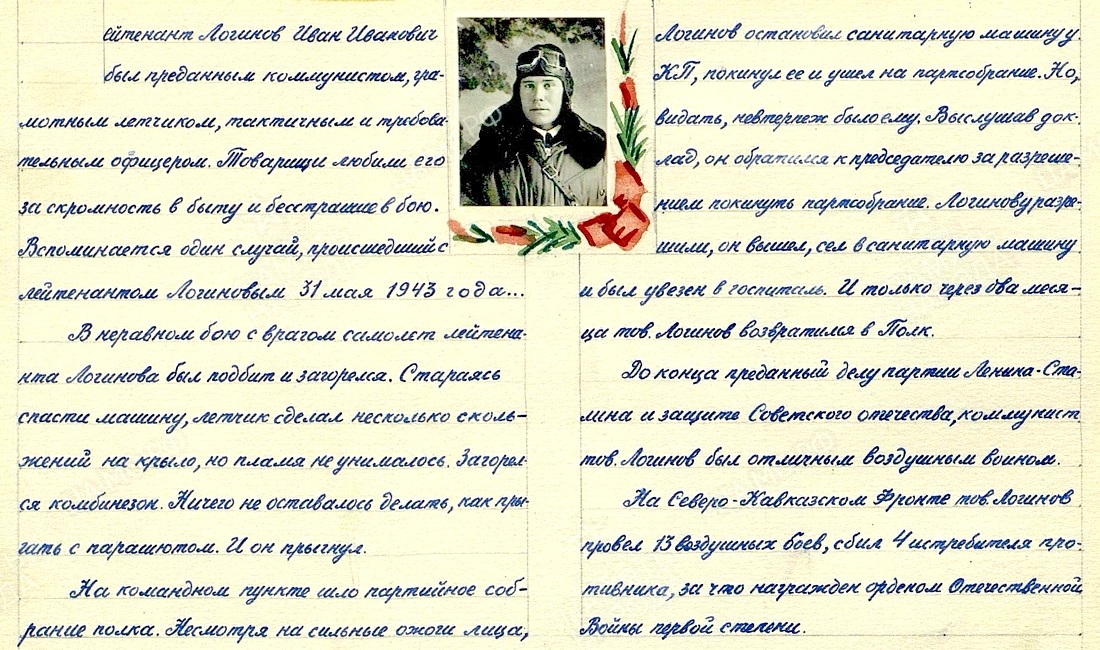 ейтенант Логинов Иван Иванович
был преданным коммунистом, гра-
мотным летчиком, тактичным и требова-
тельным офицером. Товарищи любили его
за скромность в быту и бесстрашие в бою.
Вспоминается один случай, происшедший с
лейтенантом Логиновым 31 мая 1943 года...
В неравном бою с врагом самолет лейтена-
нта Логинова был подбит и загорелся. Стараясь
спасти машину, летчик сделал несколько сколь-
жений на крыло, но пламя не унималось. Загорел-
ся комбинезон. Ничего не оставалось делать, как пры-
гать с парашютом. И он прыгнул.
На командном пункте шло партийное соб-
рание полка. Несмотря на сильные ожоги лица,
Логинов остановил санитарную машину у
КП, покинул ее и ушел на партсобрание. Но,
видать, невтерпеж было ему. Выслушав док-
лад, он обратился к председателю за разреше-
нием покинуть партсобрание. Логинову разре-
шили, он вышел, сел в санитарную машину
и был увезен в госпиталь. И только через два меся-
ца тов. Логинов возвратился в Полк.
До конца преданный делу партии Ленина-Ста-
лина и защите Советского отечества, коммунист
тов. Логинов был отличным воздушным воином.
На Северо-Кавказском Фронте тов. Логинов
провел 13 воздушных боев, сбил 4 истребителя про-
тивника, за что награжден орденом Отечественной
Войны первой степени.